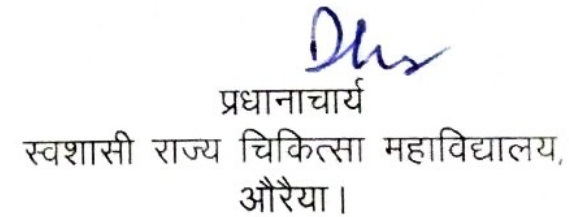 प्रधानाचार्य
स्वशासी राज्य चिकित्सा महाविद्यालय,
औरैया।